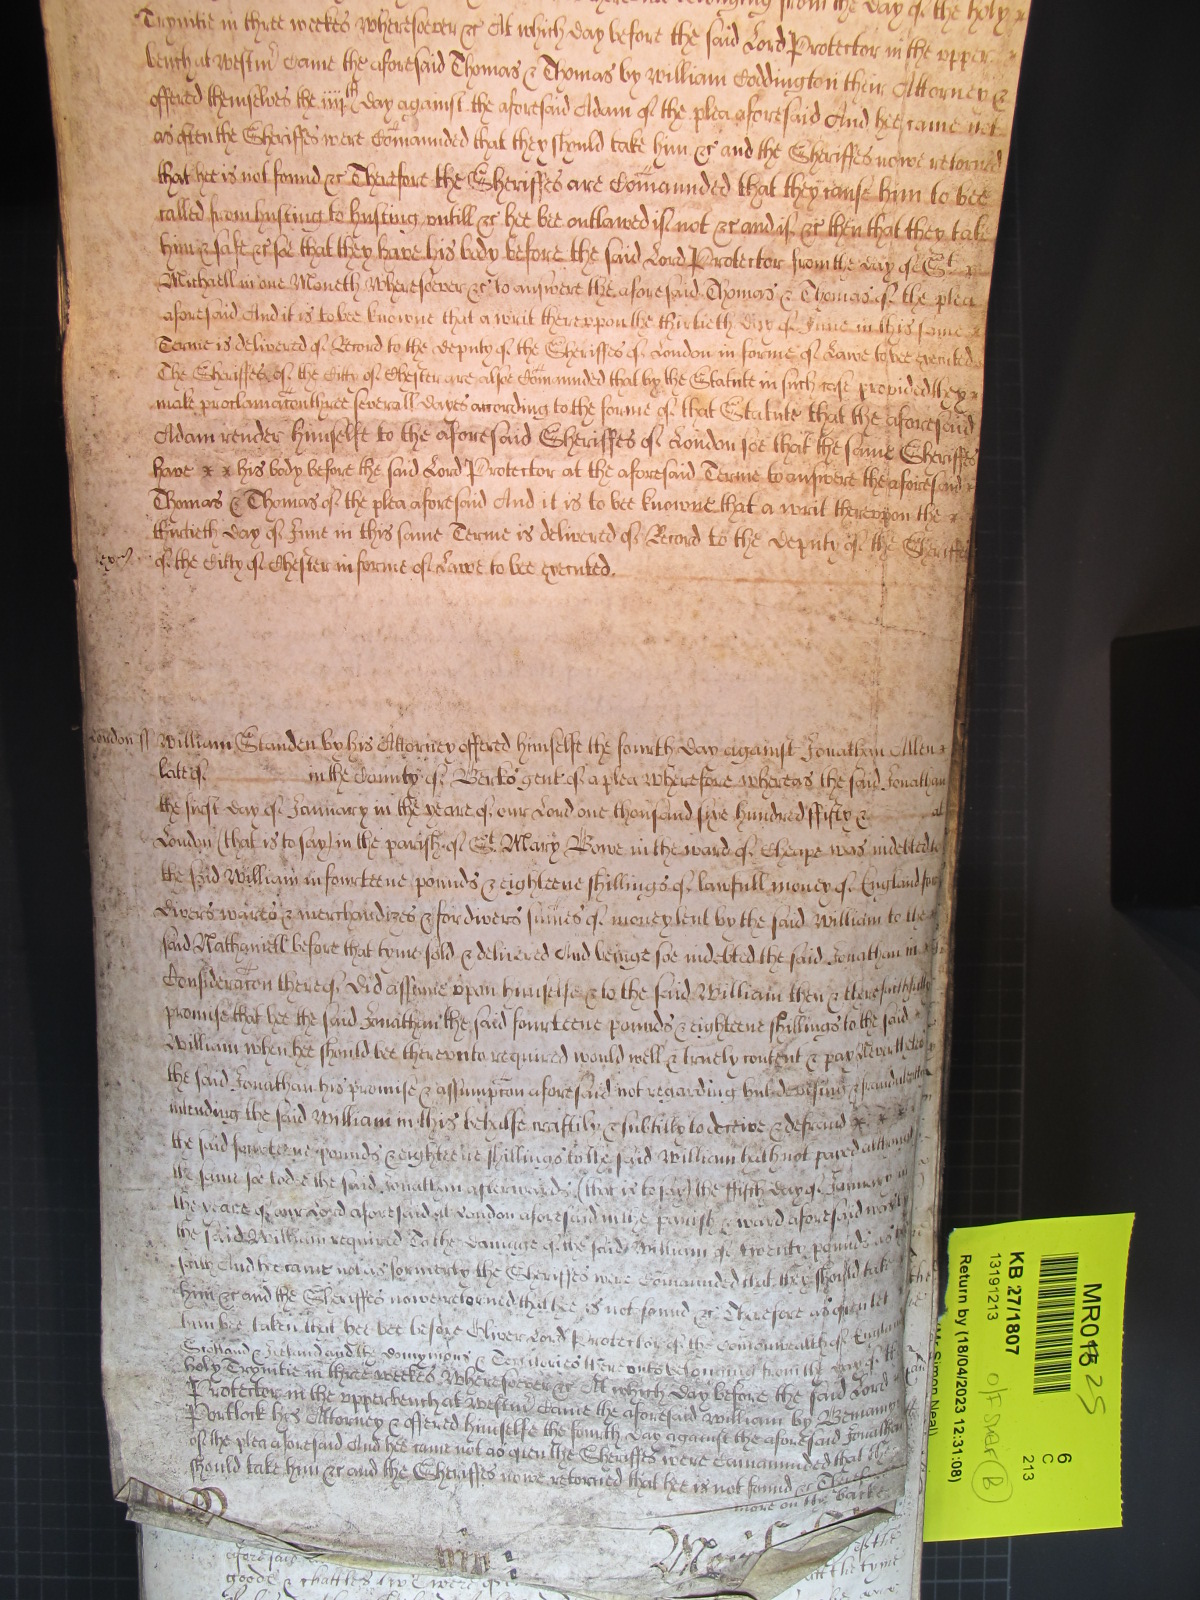 belonging from the day of the holy
Trynitie in three weekes wheresoever &c At which day before the said Lord Protector in the upper
bench at Westm̄ came the aforesaid Thomas & Thomas by William Coddington their Attorney &
offered themselves the iiijth day against the aforesaid Adam of the plea aforesaid And hee came not
as often the Sheriffes were Com̄aunded that they should take him &c and the Sheriffes nowe retorned
that hee is not found &c Therefore the Sheriffes are Com̄aunded that they cause him to bee
called from husting to husting untill &c hee bee outlawed if not &c and if &c then that they take
him & safe &c soe that they have his body before the said Lord Protector from the day of St
Michaell in one Moneth wheresoever &c to answere the aforesaid Thomas & Thomas of the plea
aforesaid And it is to bee knowne that a writ thereupon the thirtieth day of June in this same
Terme is delivered of Record to the deputy of the Sheriffes of London in forme of Lawe to bee executed
The Sheriffes of the Citty of Chester are alsoe Com̄aunded that by the Statute in such case provided they
make proclamac̄on three severall dayes according to the forme of that Statute that the aforesaid
Adam render himselfe to the aforesaid Sheriffes of London soe that the same Sheriffes
have x x his body before the said Lord Protector at the aforesaid Terme to answere the aforesaid
Thomas & Thomas of the plea aforesaid And it is to bee knowne that a writ thereupon the
thirtieth day of June in this same Terme is delivered of Record to the deputy of the Sheriffes
of the Citty of Chester in forme of Lawe to bee executed.
London ss William Standen by his Attorney offered himselfe the fourth day against Jonathan Allen
late of in the County of Berks gent of a plea wherefore whereas the said Jonathan
the first day of January in the yeare of our Lord one thousand sixe hundred ffifty & at
London (that is to say) in the parish of St Mary Bowe in the ward of Cheape was indebted to
the said William in fourteene pounds & eighteene shillings of lawfull money of England for
divers wares & merchandizes & for divers sum̄es of money lent by the said William to the
said Nathaniell before that tyme sold & delivered And beinge soe indebted the said Jonathan in
Considerac̄on thereof did assume upon himselfe & to the said William then & there faithfully
promise that hee the said Jonathan the said fourteene pounds & eighteene shillings to the said
William when hee should bee thereunto required would well & truely content & pay Neverthelesse
the said Jonathan his promise & assumpc̄on aforesaid not regarding but devising & fraudulently
intending the said William in this behalfe craftily & subtilly to deceive & defraud x x
the said fourteene pounds & eighteene shillings to the said William hath not payed although
the same soe to doe the said Jonathan afterwards (that is to say) the ffifth day of January in
the yeare of our Lord aforesaid at London aforesaid in the parish & ward aforesaid was by
the said William required To the damage of the said William of twenty pounds as hee
saith And hee came not as formerly the Sheriffes were Com̄aunded that they should take
him &c and the Sheriffes nowe retorned that hee is not found &c Therefore as often let
him bee taken that hee bee before Oliver Lord Protector of the Com̄onwealth of England
Scotland & Ireland and the dominions & Territories thereunto belonging from the day of the
holy Trynitie in three weekes wheresoever &c At which day before the said Lord
Protector in the upper bench at Westm̄ came the aforesaid William by
Portlock his Attorney & offered himselfe the fourth day against the aforesaid Jonathan
of the plea aforesaid And hee came not as often the Sheriffes were Com̄aunded that they
should take him &c and the Sheriffes nowe retorned that hee is not found &c
more on the backe
aforesaid
goods & chattles of the
att the tyme
MR01 25
6
C
213
KB 27/1807
13191213
Return by (18/04/2023 12:31:08)
(Mr Simon Neal)
B